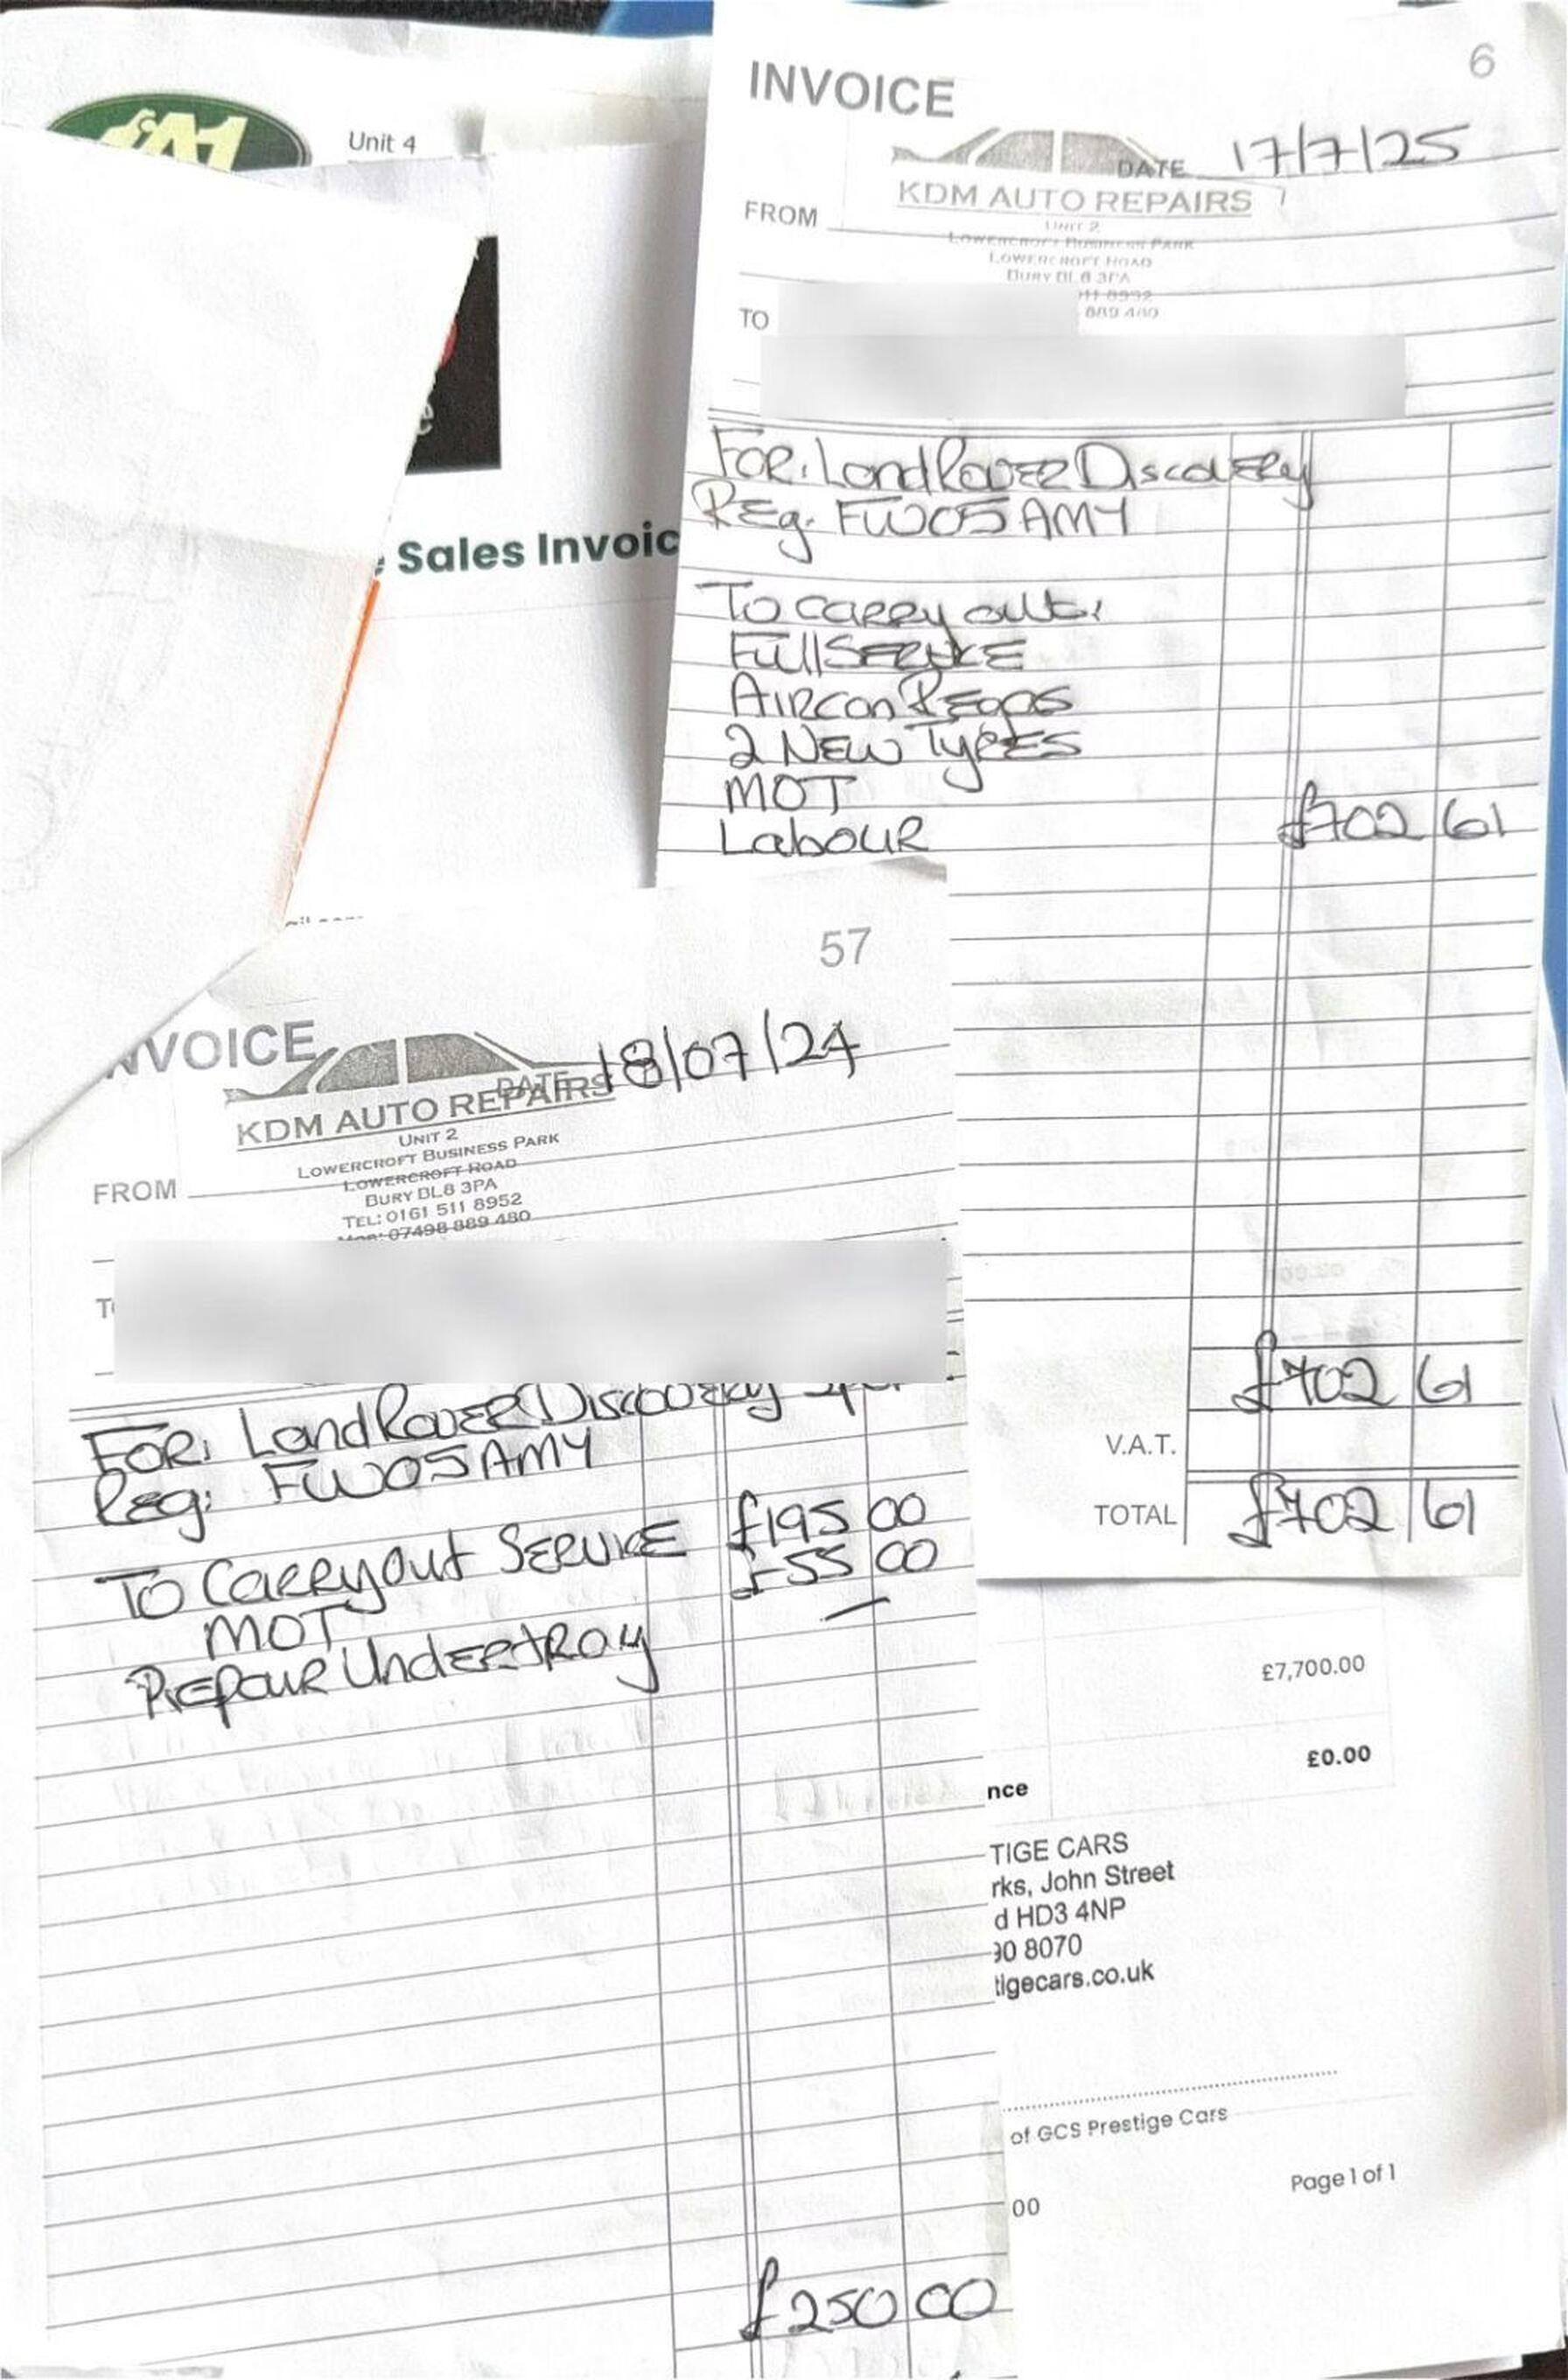 Unit 4
Sales Invoic
INVOICE
6
DATE 17/7/25
KDM AUTO REPAIRS
FROM
UNIT 2
LOWERCROFT BUSINESS PARK
LOWERCROFT ROAD
BURY BL8 3PA
11 8952
889 480
TO
FOR: Land Rover Discovery
Reg: FW05 AMY
To carry out:
Full Service
Aircon Regas
2 New Tyres
MOT
Labour £702 61
£702 61
V.A.T.
TOTAL £702 61
57
NVOICE
DATE 18/07/24
KDM AUTO REPAIRS
UNIT 2
LOWERCROFT BUSINESS PARK
LOWERCROFT ROAD
BURY BL8 3PA
TEL: 0161 511 8952
MOB: 07498 889 480
FROM
FOR: Land Rover Discovery
Reg: FW05 AMY
To Carry out Service £195 00
MOT £55 00
Repair Undertray —
£250 00
£7,700.00
£0.00
nce
TIGE CARS
rks, John Street
d HD3 4NP
90 8070
tigecars.co.uk
of GCS Prestige Cars
Page 1 of 1
00